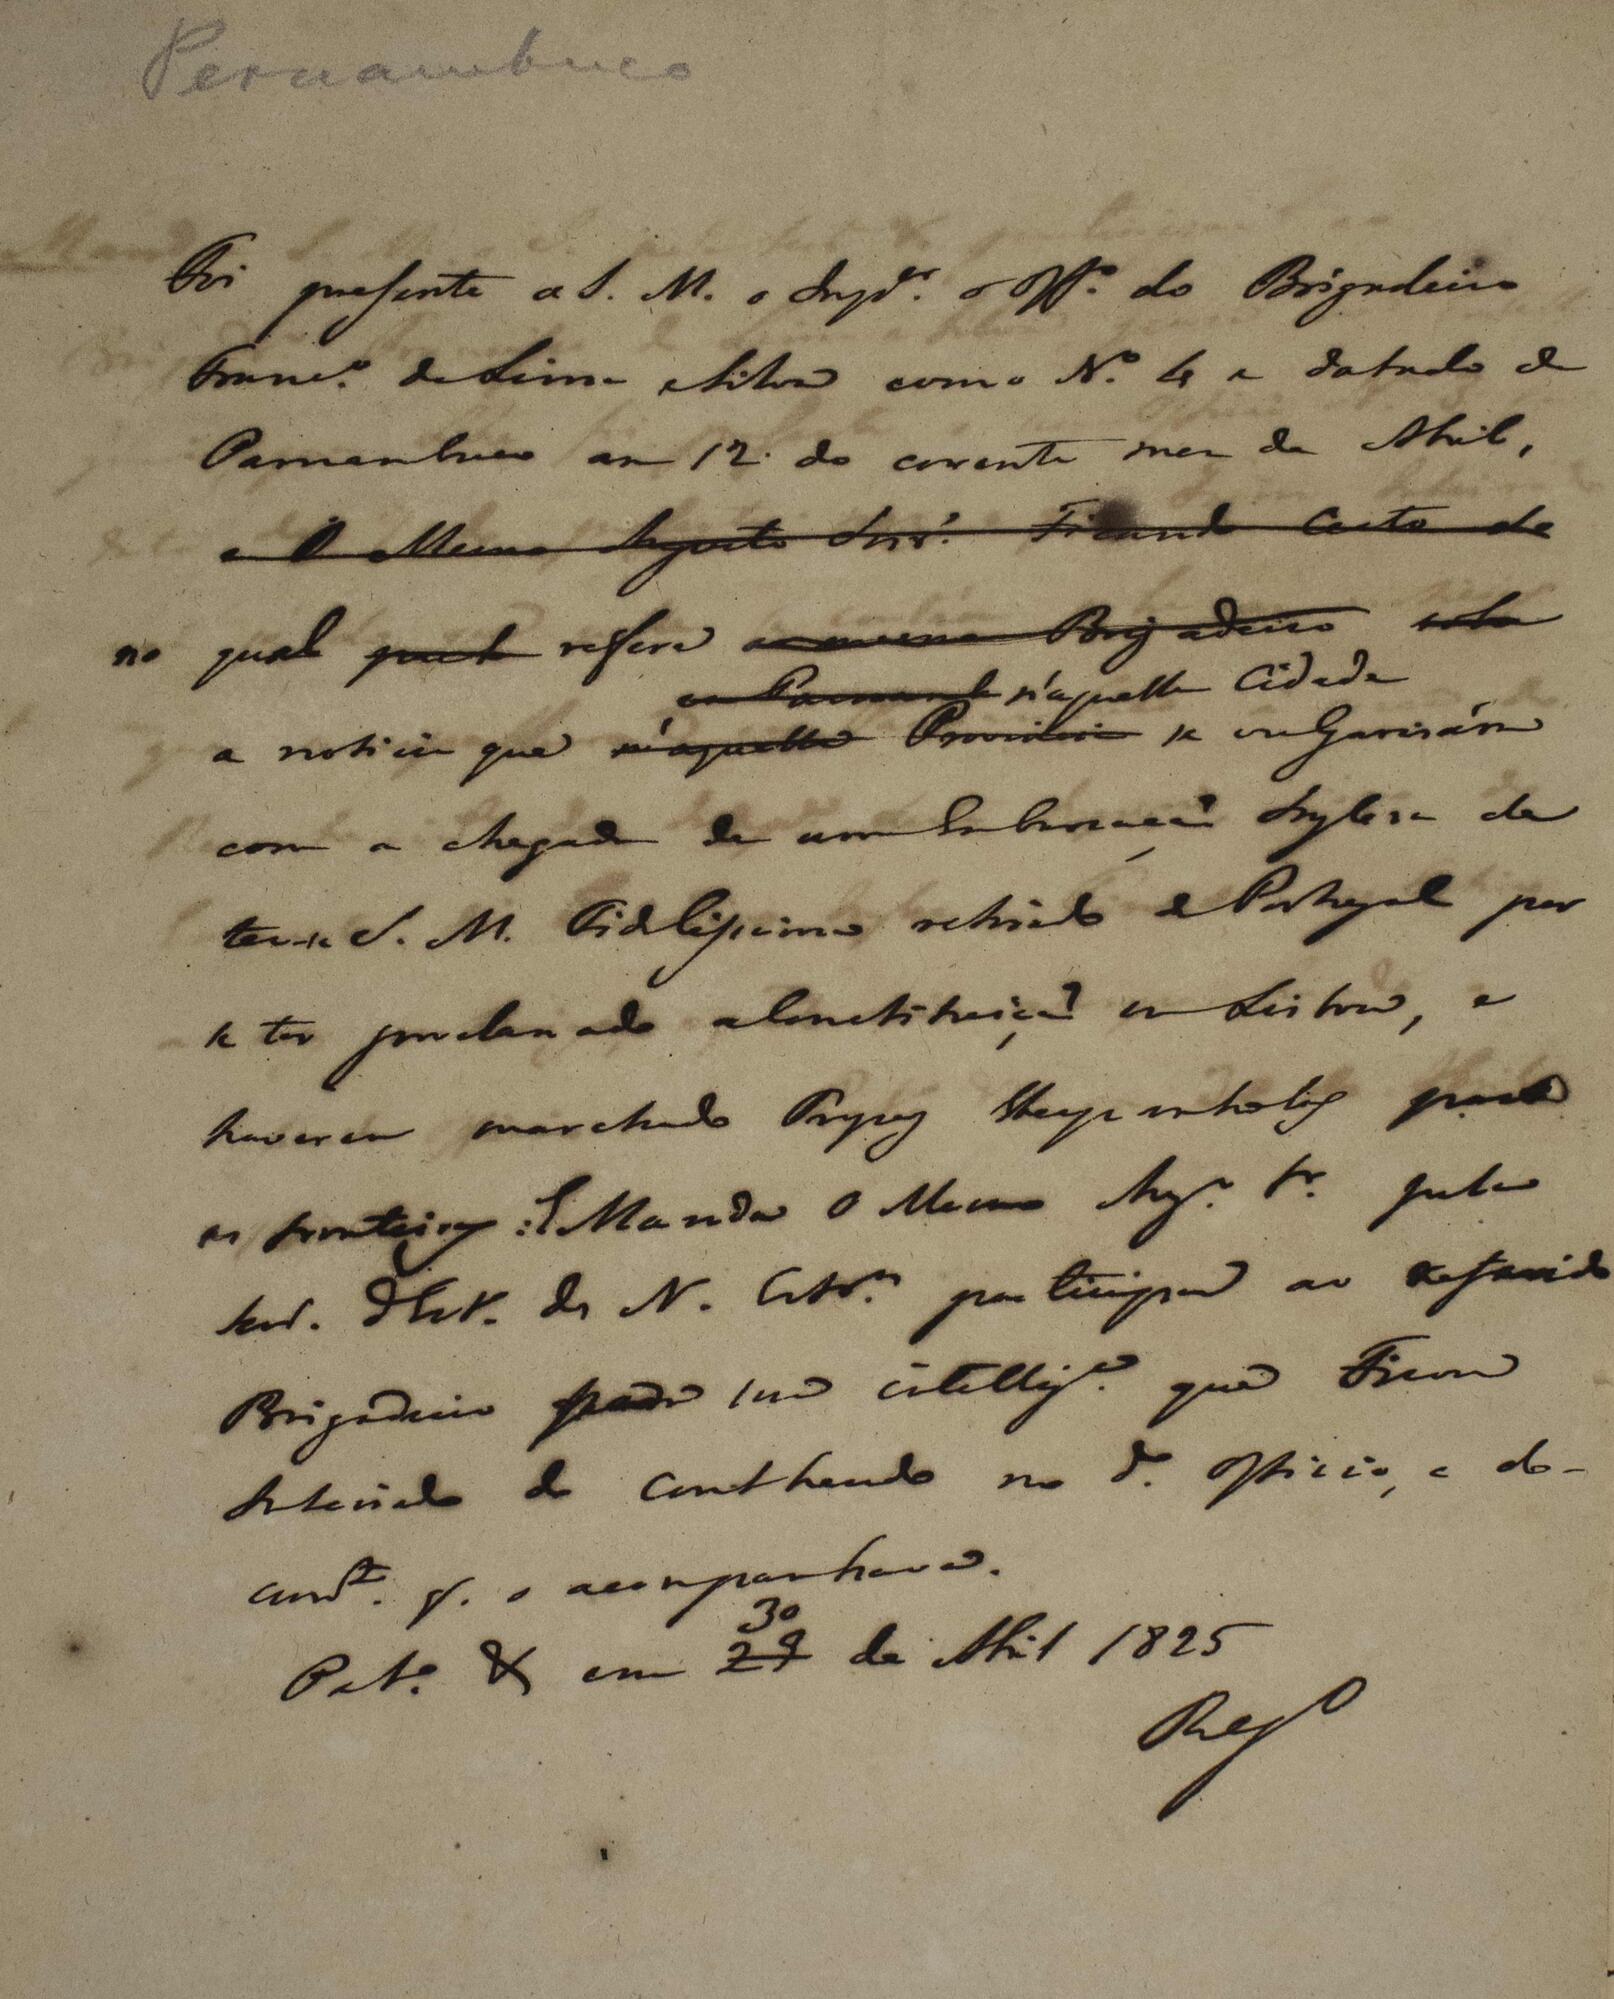 Pernambuco
Foi presente a S. M. o Impdr. o Offo. do Brigadeiro
Franco. de Lima e Silva com o No. 4 e datado de
Parnambuco em 12 do corrente mez de Abril,
e O Mesmo Augusto Senr. Ficando Certo de
no qual refere o mesmo Brigadeiro
n'aquella Cidade
a noticia que n'aquella Provincia se vulgarisára
com a chegada de uma Embarcação Ingleza de
ter-se S. M. Fidelissima retirado de Portugal por
se ter proclamado a Constituição em Lisboa, e
haverem marchado Tropas Hespanholas para
as fronteiras: E Manda O Mesmo Augo. Sr. pela
Secr. d'Est. de N. Estro. participar ao referido
Brigadeiro para sua intelliga. que Ficou
Inteirado do contheudo no do. Officio, e do-
cumto. q. o acompanhava.
30
Palo. & em 29 de Abril 1825
Rego